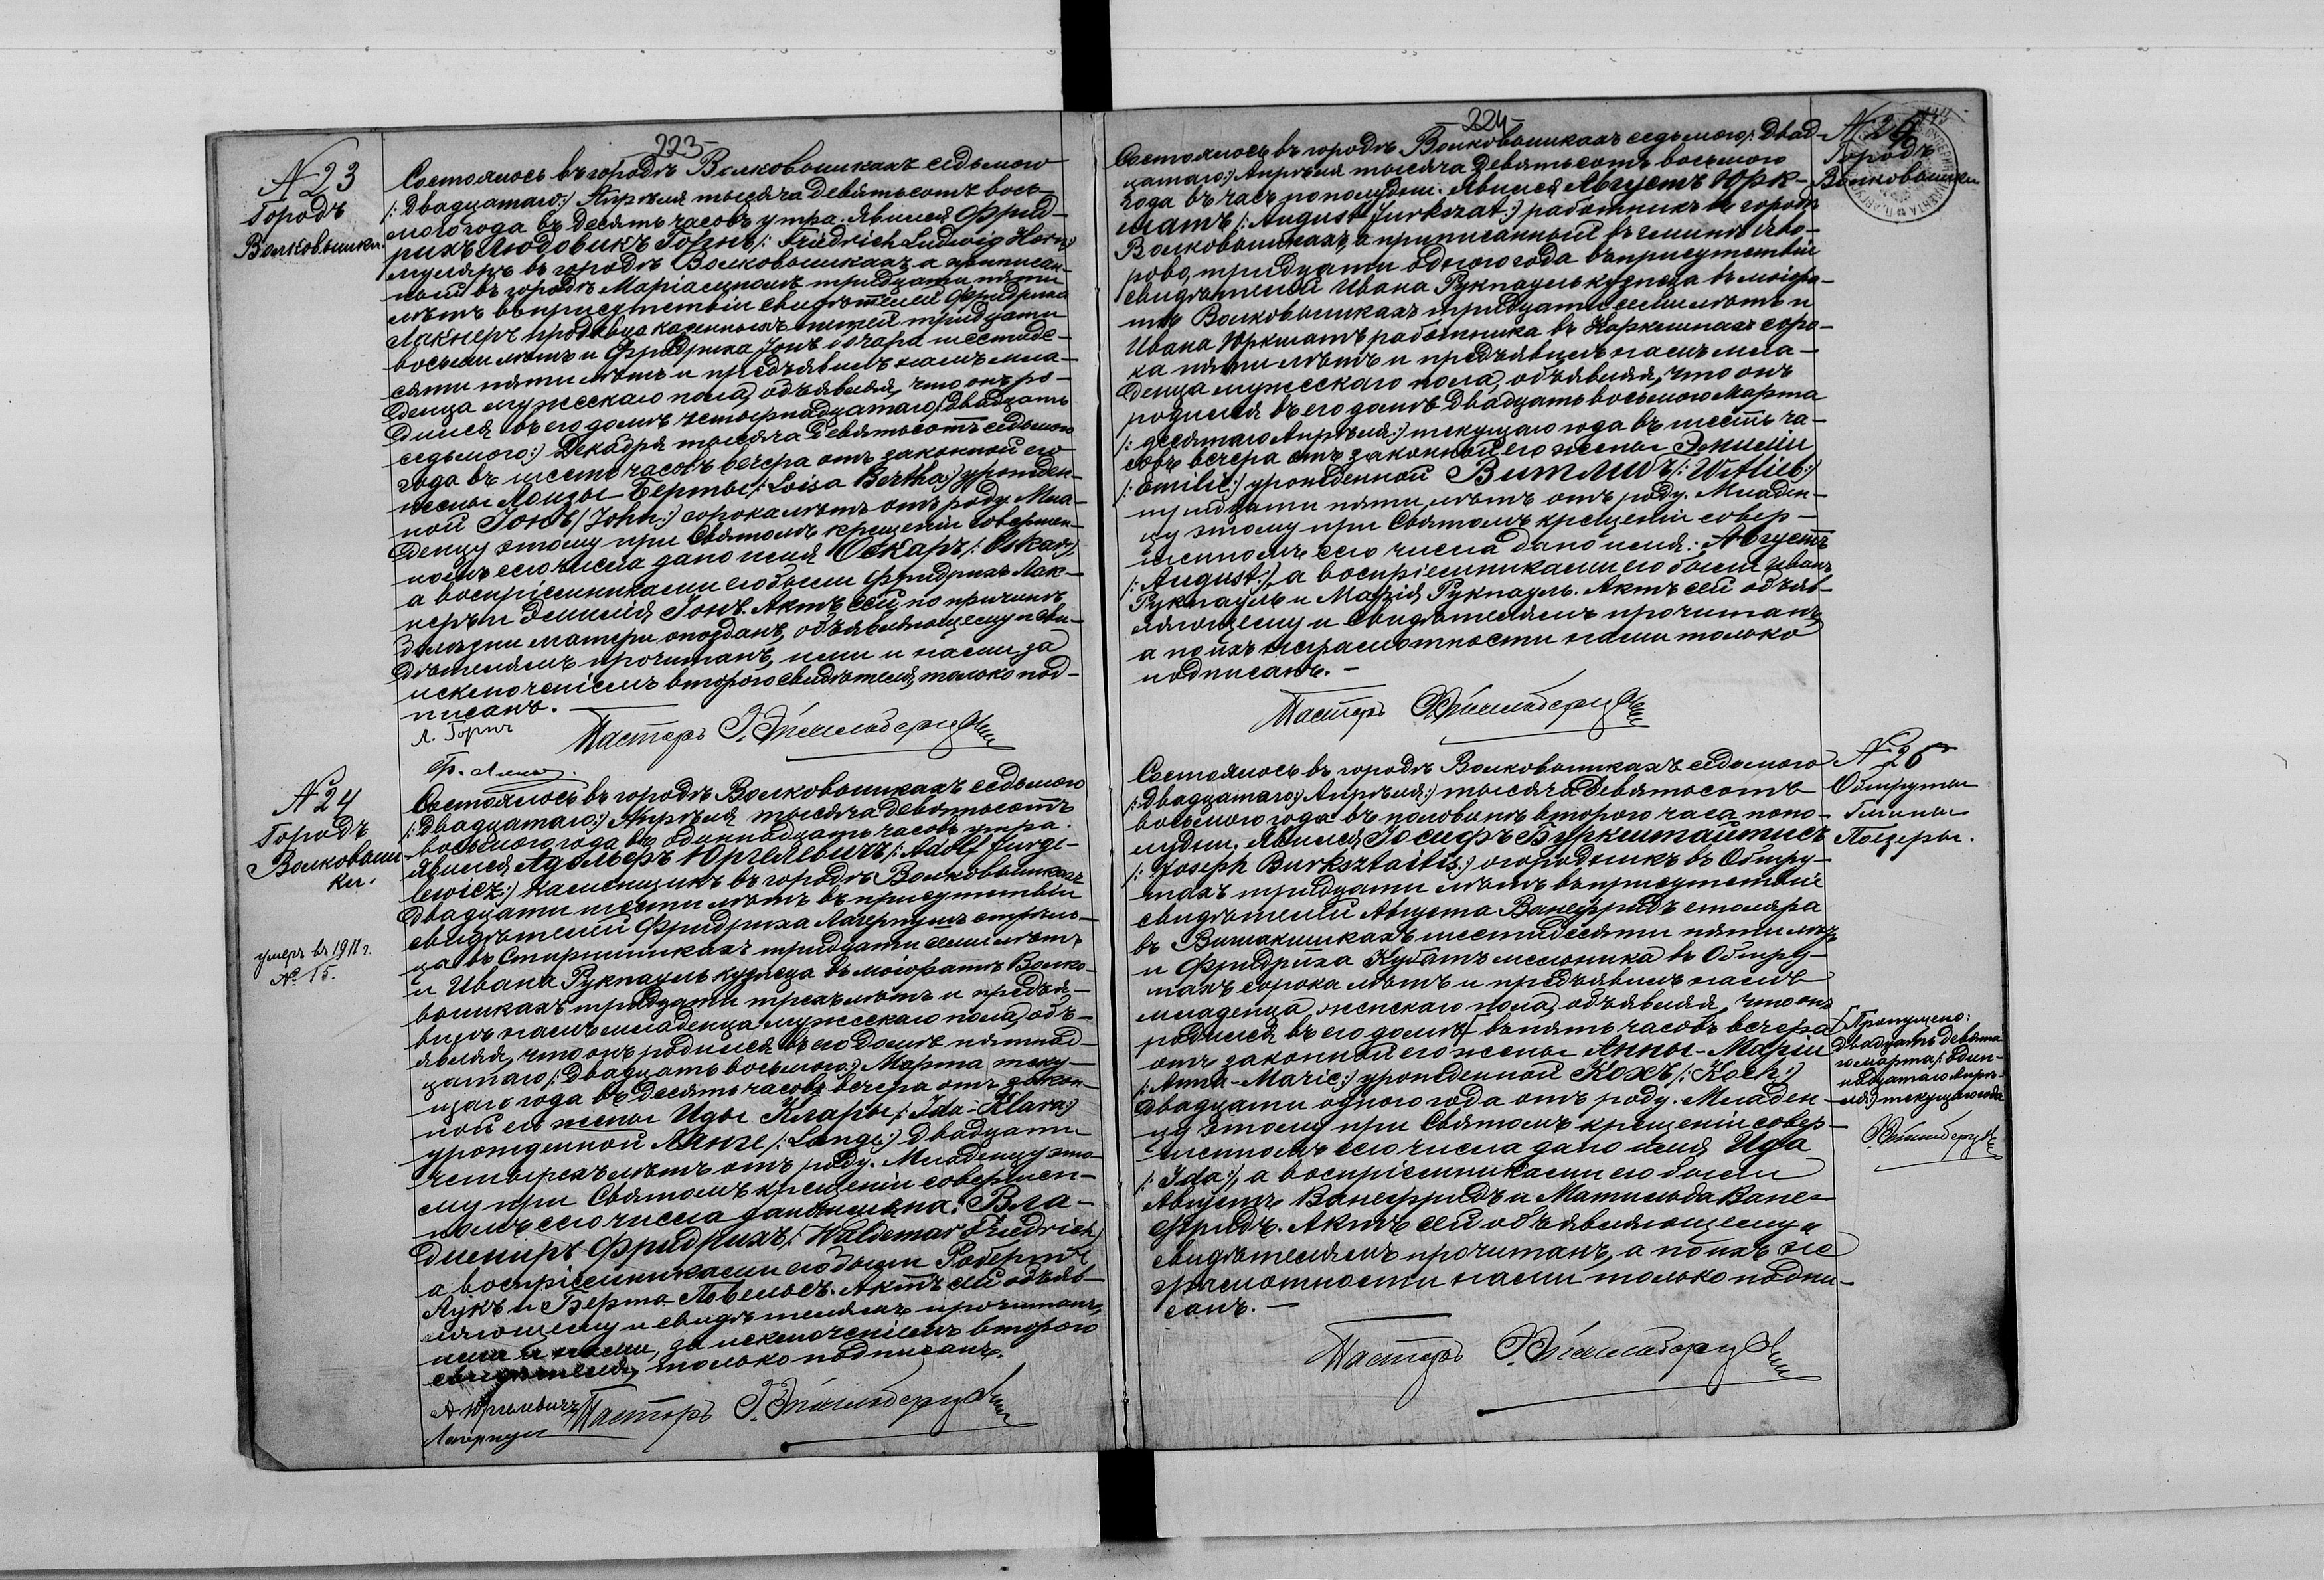 223
N 23
Городъ
Волковышки.
Состоялось въ городѣ Волковышкахъ седьмого
/: двадцатаго:/ Апрѣля тысяча девятьсотъ вось-
мого года въ десять часовъ утра. Явился Фрид-
рихъ Людовикъ Горнъ /: Friedrich Ludwig Horn:/
муляръ въ городѣ Волковышкахъ а приписан-
ный въ городѣ Маріамполѣ тридцати пяти
лѣтъ въ присутствіи свидѣтелей Фридриха
Лакнеръ продавца казенныхъ питей тридцати
восьми лѣтъ и Фридриха Іонъ овчара шестиде-
сяти пяти лѣтъ и предъявилъ намъ мла-
денца мужескаго пола, объявляя, что онъ ро-
дился въ его домѣ четырнадцатаго /: двадцать
седьмого:/ Декабря тысяча девятьсотъ седьмого
года въ шесть часовъ вечера отъ законной его
жены Лоизы-Берты /: Loisa Bertha:/ урожден-
ной Іонъ /: John:/ сорока лѣтъ отъ роду. Мла-
денцу этому при Святомъ крещеніи совершен-
номъ сего числа дано имя Оскаръ /: Oskar:/
а воспріемниками его были Фридрихъ Лак-
неръ и Эмилія Іонъ. Актъ сей, по причинѣ
болѣзни матери опозданъ, объявляющему и сви-
дѣтелямъ прочитанъ, ими и нами за
исключеніемъ второго свидѣтеля, только под-
писанъ.
Л. Горнъ
Пасторъ
Фр.
N 24
Городъ
Волковыш-
ки.
умеръ въ 1911 г.
№ 15.
Состоялось въ городѣ Волковышкахъ седьмого
/: двадцатаго:/ Апрѣля тысяча девятьсотъ
восьмого года въ одиннадцать часовъ утра.
Явился Адольфъ Юргелевичъ /: Adolf Jurge-
lewicz:/ каменщикъ въ городѣ Волковышкахъ
двадцати шести лѣтъ въ присутствіи
свидѣтелей Фридриха Лагерпушъ стрѣль-
ца въ Стирнишкахъ тридцати семи лѣтъ
и Ивана Рукпауль кузнеца въ маіоратѣ Волко-
вышкахъ тридцати трехъ лѣтъ и предъя-
вилъ намъ младенца мужескаго пола, объ-
являя, что онъ родился въ его домѣ пятнад-
цатаго /: двадцать восьмого:/ Марта теку-
щаго года въ десять часовъ вечера отъ закон-
ной его жены Иды Клары /: Ida-Klara:/
урожденной Ланге /: Lange:/ двадцати
четырехъ лѣтъ отъ роду. Младенцу это-
му при Святомъ крещеніи совершен-
номъ сего числа даны имена: Вла-
димиръ Фридрихъ /: Waldemar Friedrich:/
а воспріемниками его были Робертъ
Лукъ и Берта Повельсъ. Актъ сей объяв-
ляющему и свидѣтелямъ прочитанъ,
ими и нами, за исключеніемъ второго
свидѣтеля, только подписанъ.
А Юргелевичъ
Пасторъ
Лагерпушъ
224
Городъ
Волковышки
Состоялось въ городѣ Волковышкахъ седьмого /: двад-
цатаго:/ Апрѣля тысяча девятьсотъ восьмого
года въ часъ пополудни. Явился Августъ Юрк-
шатъ /: August Jurkszat:/ работникъ въ городѣ
Волковышкахъ, а приписанный въ гминѣ Яво-
рово, тридцати одного года въ присутствіи
свидѣтелей Ивана Рукпауль кузнеца въ маіора-
тѣ Волковышкахъ тридцати семи лѣтъ и
Ивана Юркшатъ работника въ Каркшнахъ соро-
ка пяти лѣтъ и предъявилъ намъ мла-
денца мужескаго пола, объявляя, что онъ
родился въ его домѣ двадцать восьмого Марта
/: десятаго Апрѣля:/ текущаго года въ шесть ча-
совъ вечера отъ законной его жены Эмиліи
/: Emilie:/ урожденной Витлибъ /: Wittlib:/
тридцати пяти лѣтъ отъ роду. Младен-
цу этому при Святомъ крещеніи совер-
шенномъ сего числа дано имя: Августъ
/: August:/, а воспріемниками его были Иванъ
Рукпауль и Марія Рукпауль. Актъ сей объяв-
ляющему и свидѣтелямъ прочитанъ,
а по ихъ неграмотности нами только
подписанъ. -
Пасторъ
N 26
Обшруты
Гмины
Поезеры.
Состоялось въ городѣ Волковышкахъ седьмого
/: двадцатаго:/ Апрѣля:/ тысяча девятьсотъ
восьмого года въ половинѣ второго часа попо-
лудни. Явился Іосифъ Буркштайтисъ
/: Joseph Burksztaitis:/ огородникъ въ Обшру-
тахъ тридцати лѣтъ въ присутствіи
свидѣтелей Августа Ванефридъ столяра
въ Вилкишкахъ шестидесяти пяти лѣтъ
и Фридриха Кубатъ мельника въ Обшру-
тахъ сорока лѣтъ и предъявилъ намъ
младенца женскаго пола, объявляя, что онъ
родился въ его домѣ въ пять часовъ вечера
отъ законной его жены Анны-Маріи
/: Anna-Marie:/ урожденной Кохъ /: Koch:/
двадцати одного года отъ роду. Младен-
цу этому при Святомъ крещеніи совер-
шенномъ сего числа дано имя Ида
/: Ida:/, а воспріемниками его были
Августъ Ванефридъ и Матильда Ване-
фридъ. Актъ сей объявляющему и
свидѣтелямъ прочитанъ, а по ихъ не
грамотности нами только подпи-
санъ. -
Пасторъ
Пропущено:
двадцать девята-
го марта /: один-
надцатаго Апрѣ-
ля:/ текущаго года